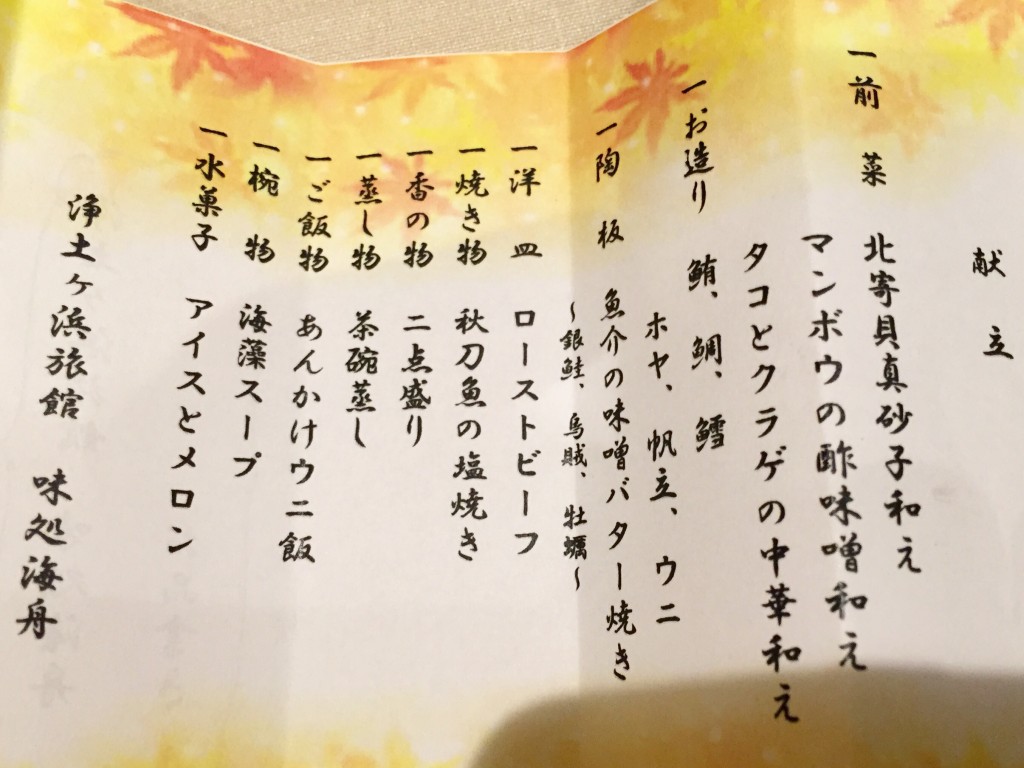 献立
一前菜 北寄貝真砂子和え
マンボウの酢味噌和え
タコとクラゲの中華和え
一お造り 鮪、鯛、鱈
ホヤ、帆立、ウニ
一陶板 魚介の味噌バター焼き
～銀鮭、烏賊、牡蠣～
一洋皿 ローストビーフ
一焼き物 秋刀魚の塩焼き
一香の物 二点盛り
一蒸し物 茶碗蒸し
一ご飯物 あんかけウニ飯
一椀物 海藻スープ
一水菓子 アイスとメロン
浄土ヶ浜旅館 味処海舟